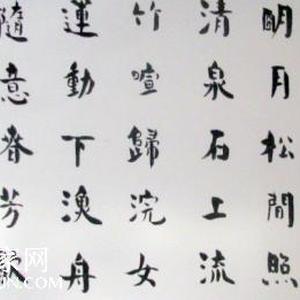 明月松間照
清泉石上流
竹喧歸浣女
蓮動下漁舟
隨意春芳
家网